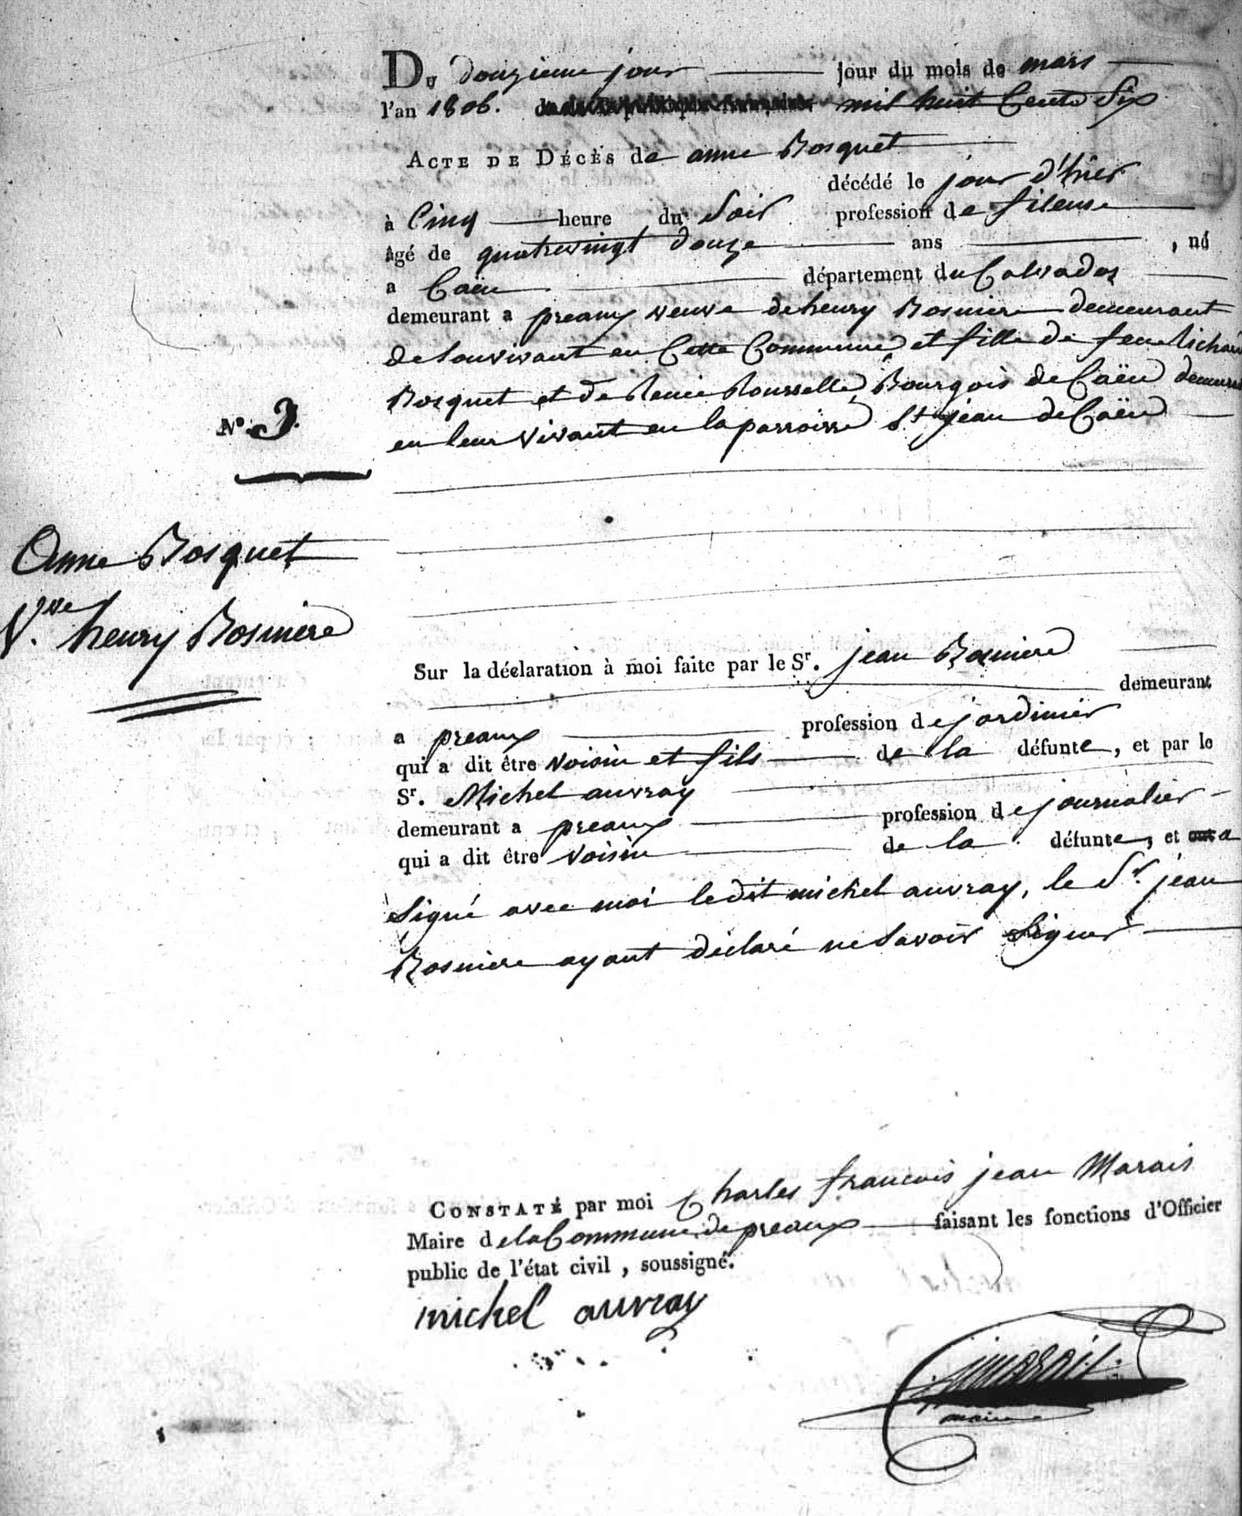 Du douzieme jour jour du mois de mars
l'an 1806. mil huit Cents Six
ACTE DE DÉCÈS de anne Bosquet
décédé le jour d'hier
à Cinq heure du Soir profession de fileuse
âgé de quatrevingt douze ans , né
a Caën département du Calvados
demeurant a preaux veuve de henry Bosniere demeurant
de Son vivant en Cette Commune et fille de feu Richard
Bosquet et de Renée Rousselle, Bourgois de Caën demeurant
en leur vivant en la parroisse St jean de Caën
N.º 9.
Anne Bosquet
V.ve henry Bosniere
Sur la déclaration à moi faite par le Sr. jean Bosniere
demeurant
a preaux profession de jardinier
qui a dit être voisin et fils de la défunte, et par le
Sr. Michel auvray
demeurant a preaux profession de journalier
qui a dit être voisin de la défunte, et a
Signé avec moi ledit michel auvray, le Sr. jean
Bosniere ayant déclaré ne Savoir Signer
CONSTATÉ par moi Charles francois jean Marais
Maire de la Commune de preaux faisant les fonctions d'Officier
public de l'état civil, soussigné.
michel auvray
marais
maire